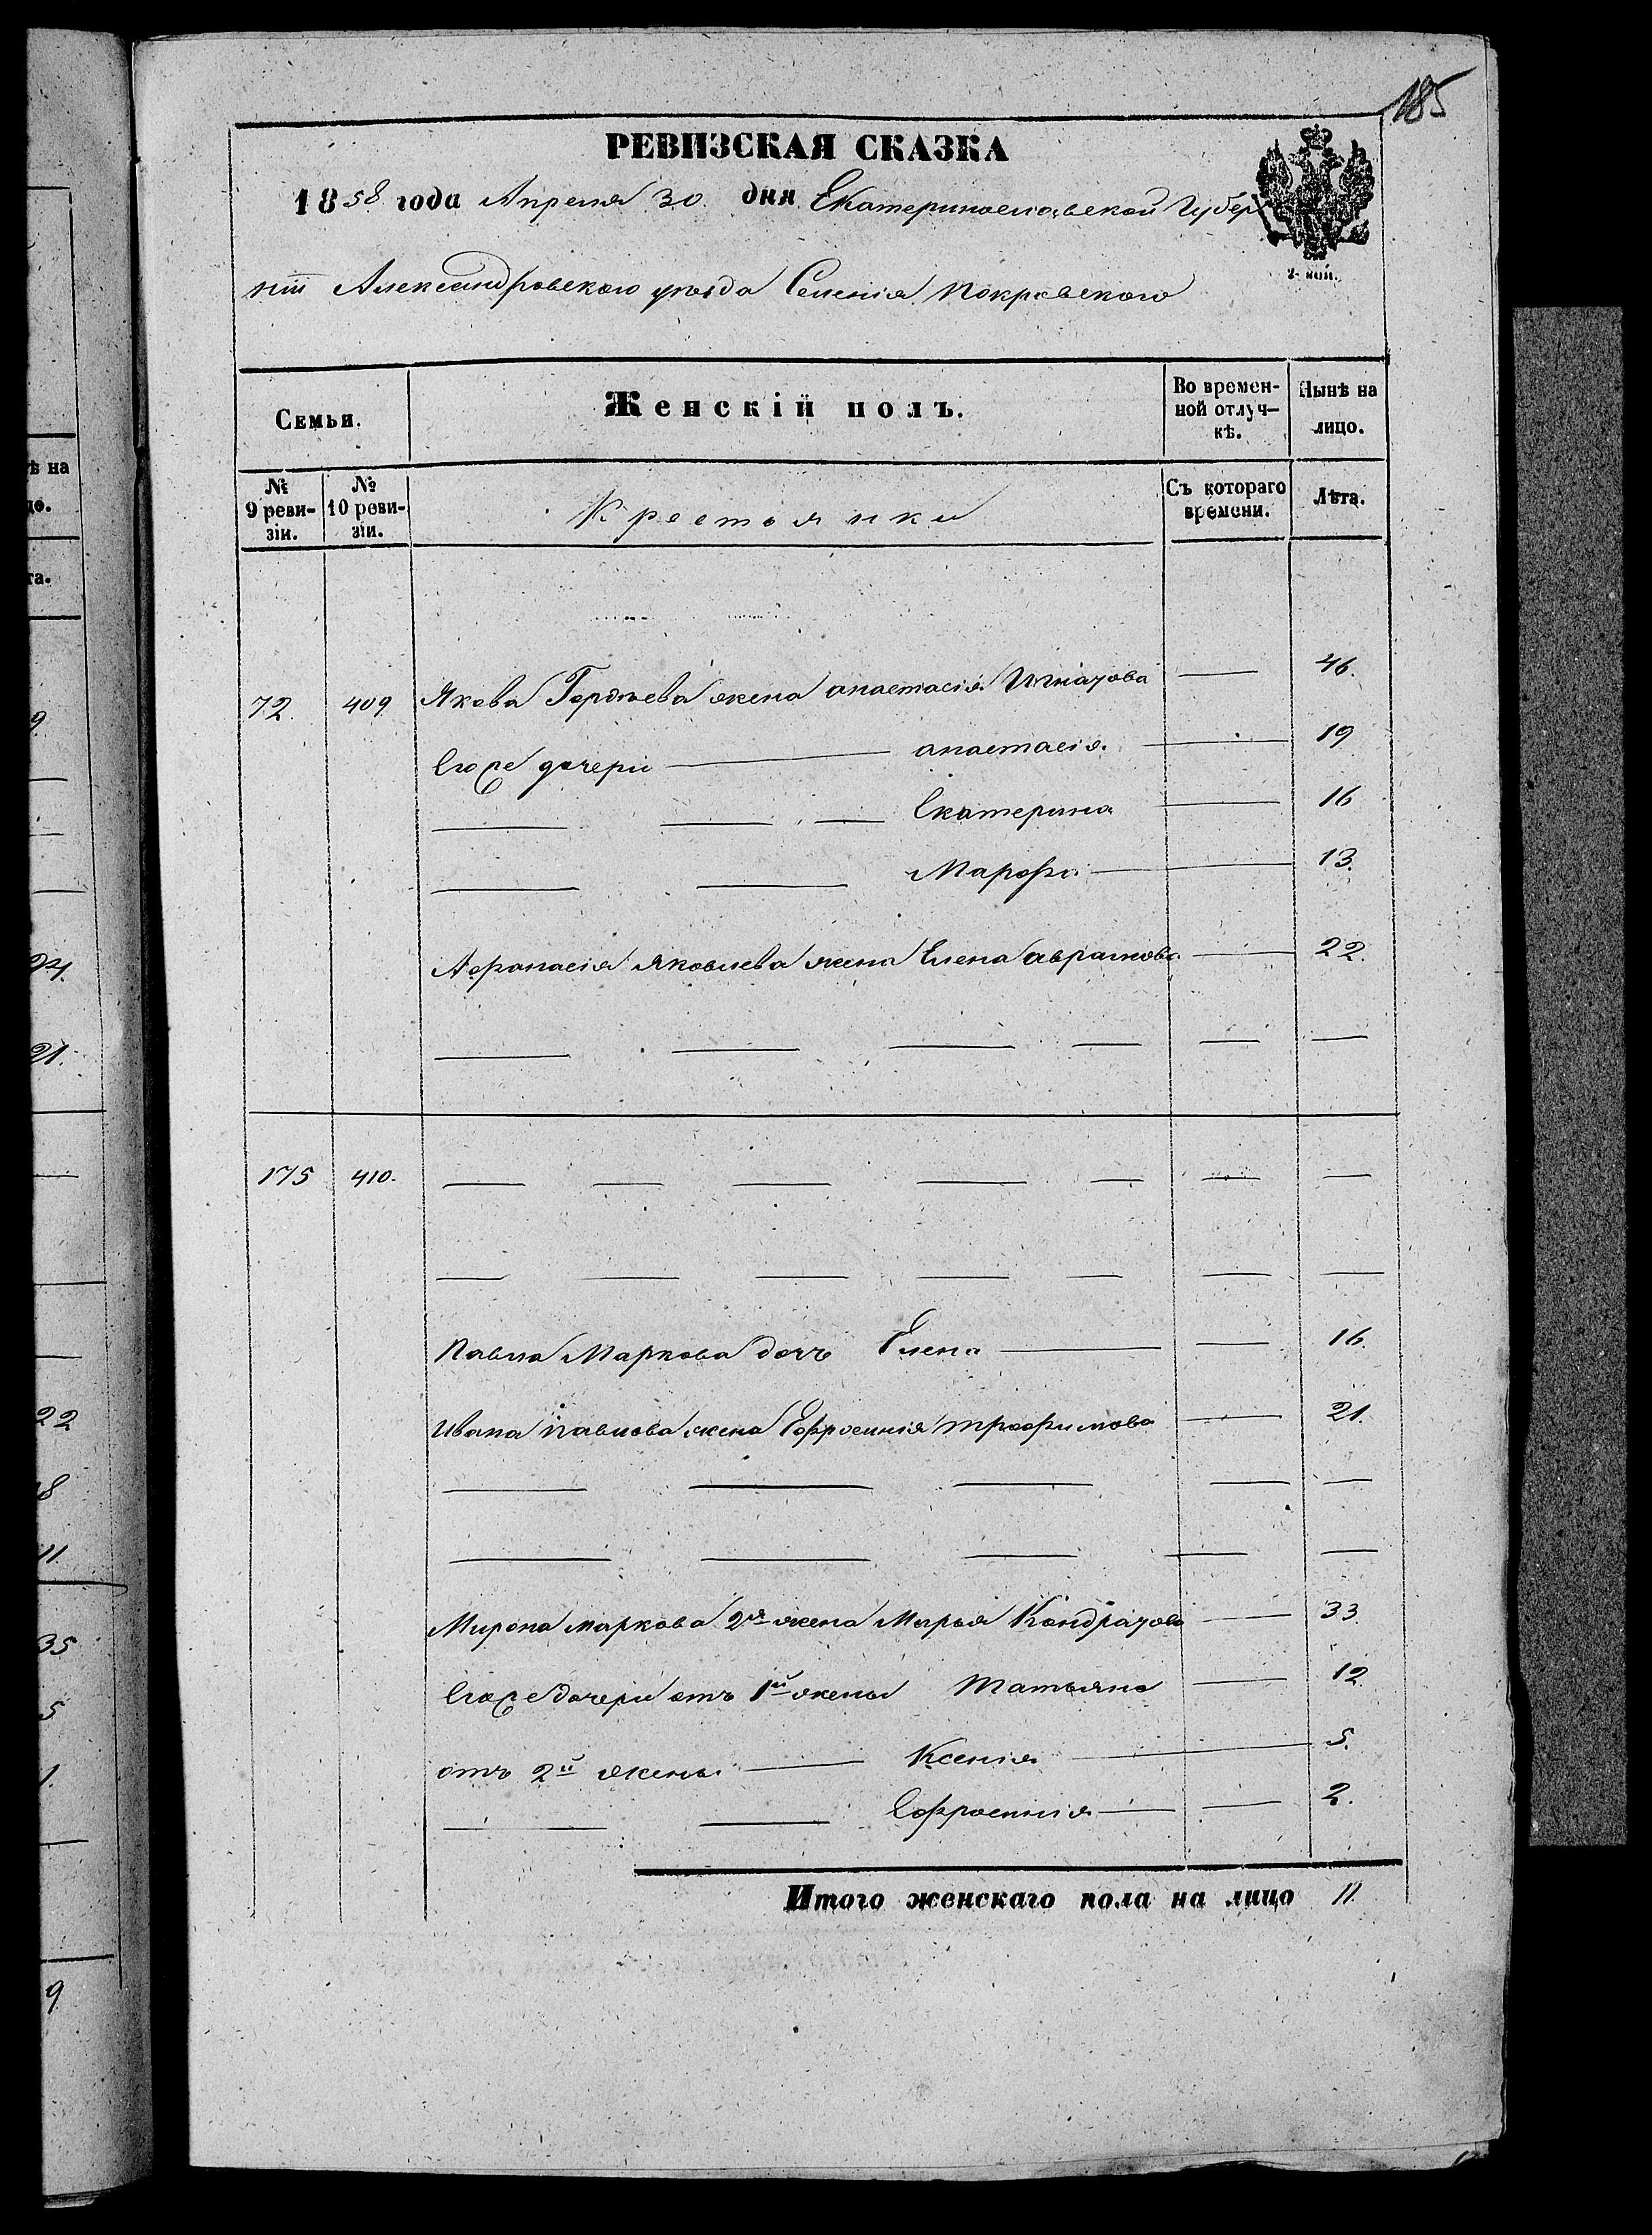 185
РЕВИЗСКАЯ СКАЗКА
1858 года Апреля 30. дня Екатеринославской Губер
ніи Александровскаго уѣзда Селенія Покровскаго
2-коп.
Семьи.
Женскій полъ.
Во времен-
ной отлуч-
кѣ.
Нынѣ на
лицо.
№
9 реви-
зіи.
№
10 реви-
зіи.
Крестьянки
Съ котораго
времени.
Лѣта.
72. 409 Якова Гордѣева жена анастасія Игнатова — 46.
Его же дочери — анастасія — 19
— — — Екатерина — 16
— — Марфа — 13.
Афанасія Яковлева жена Елена аврамова — 22.
— — — — — —
175 410. — — — — — — —
— — — — — — —
Павла Маркова дочь Елена — — 16.
Ивана Павлова жена Ефросинія трофимова — 21.
— — — — —
— — — — —
Мирона маркова 2я жена Марья Кондратова — 33.
Его же дочери отъ 1й жены Татьяна — 12
отъ 2й жены — Ксенія — 5.
— — Ефросинія — — 2.
Итого женскаго пола на лицо 11
ѣ на
цо.
та.
9
24.
21.
22
18
11.
35
5
1.
9